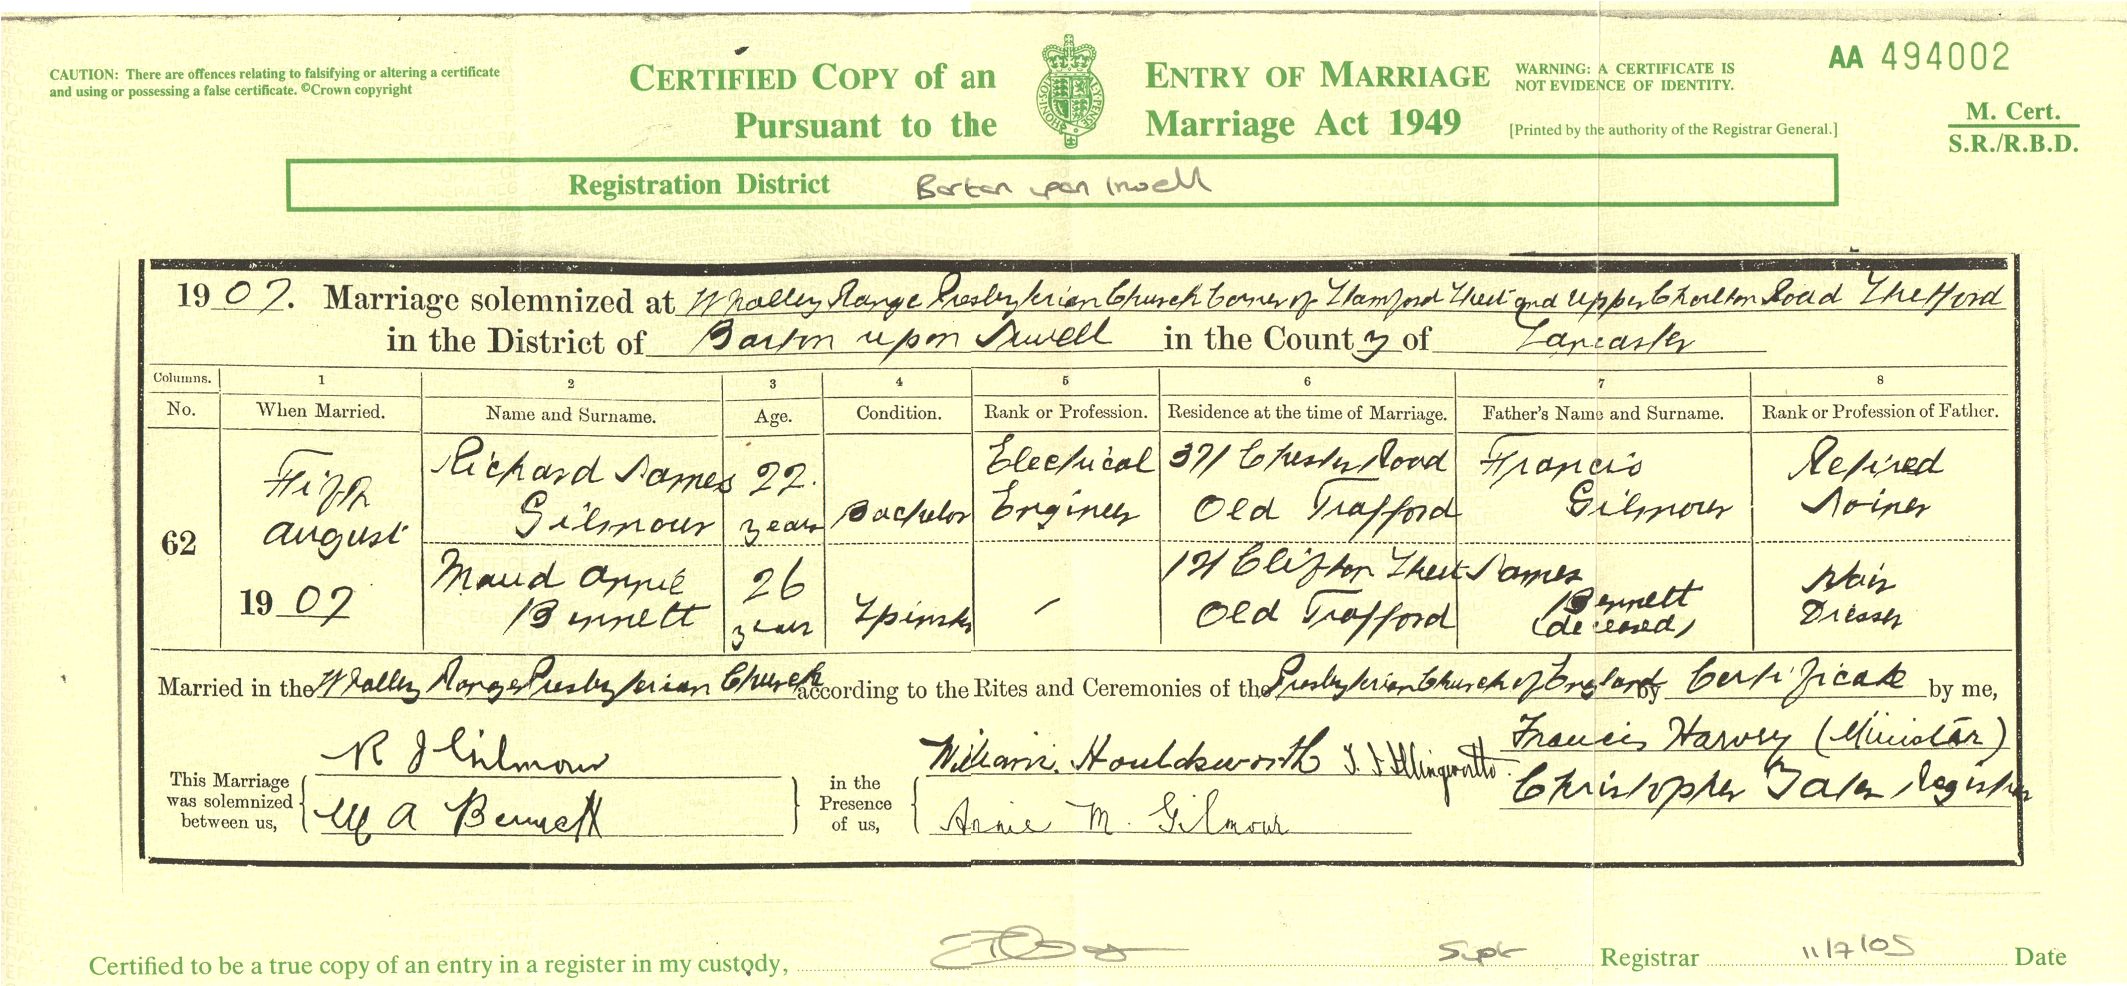 CAUTION: There are offences relating to falsifying or altering a certificate
and using or possessing a false certificate. ©Crown copyright
CERTIFIED COPY of an ENTRY OF MARRIAGE
Pursuant to the Marriage Act 1949
WARNING: A CERTIFICATE IS
NOT EVIDENCE OF IDENTITY.
[Printed by the authority of the Registrar General.]
AA 494002
M. Cert.
S.R./R.B.D.
Registration District Barton upon Irwell
1907. Marriage solemnized at Whalley Range Presbyterian Church Corner of Stamford Street and Upper Chorlton Road Stretford
in the District of Barton upon Irwell in the County of Lancaster
Columns. 1 2 3 4 5 6 7 8
No. When Married. Name and Surname. Age. Condition. Rank or Profession. Residence at the time of Marriage. Father's Name and Surname. Rank or Profession of Father.
62
Fifth
August
1907
Richard James
Gilmour
22
years
Bachelor
Electrical
Engineer
371 Chester Road
Old Trafford
Francis
Gilmour
Retired
Joiner
Maud Annie
Bennett
26
years
Spinster
-
121 Clifton Street
Old Trafford
James
Bennett
(deceased)
Hair
Dresser
Married in the Whalley Range Presbyterian Church according to the Rites and Ceremonies of the Presbyterian Church of England by Certificate by me,
This Marriage
was solemnized
between us,
R J Gilmour
M A Bennett
in the
Presence
of us,
William Houldsworth J. J. Illingworth
Annie M. Gilmour
Francis Harvey (Minister)
Christopher Tates Registrar
Certified to be a true copy of an entry in a register in my custody, Supt Registrar 11/7/05 Date